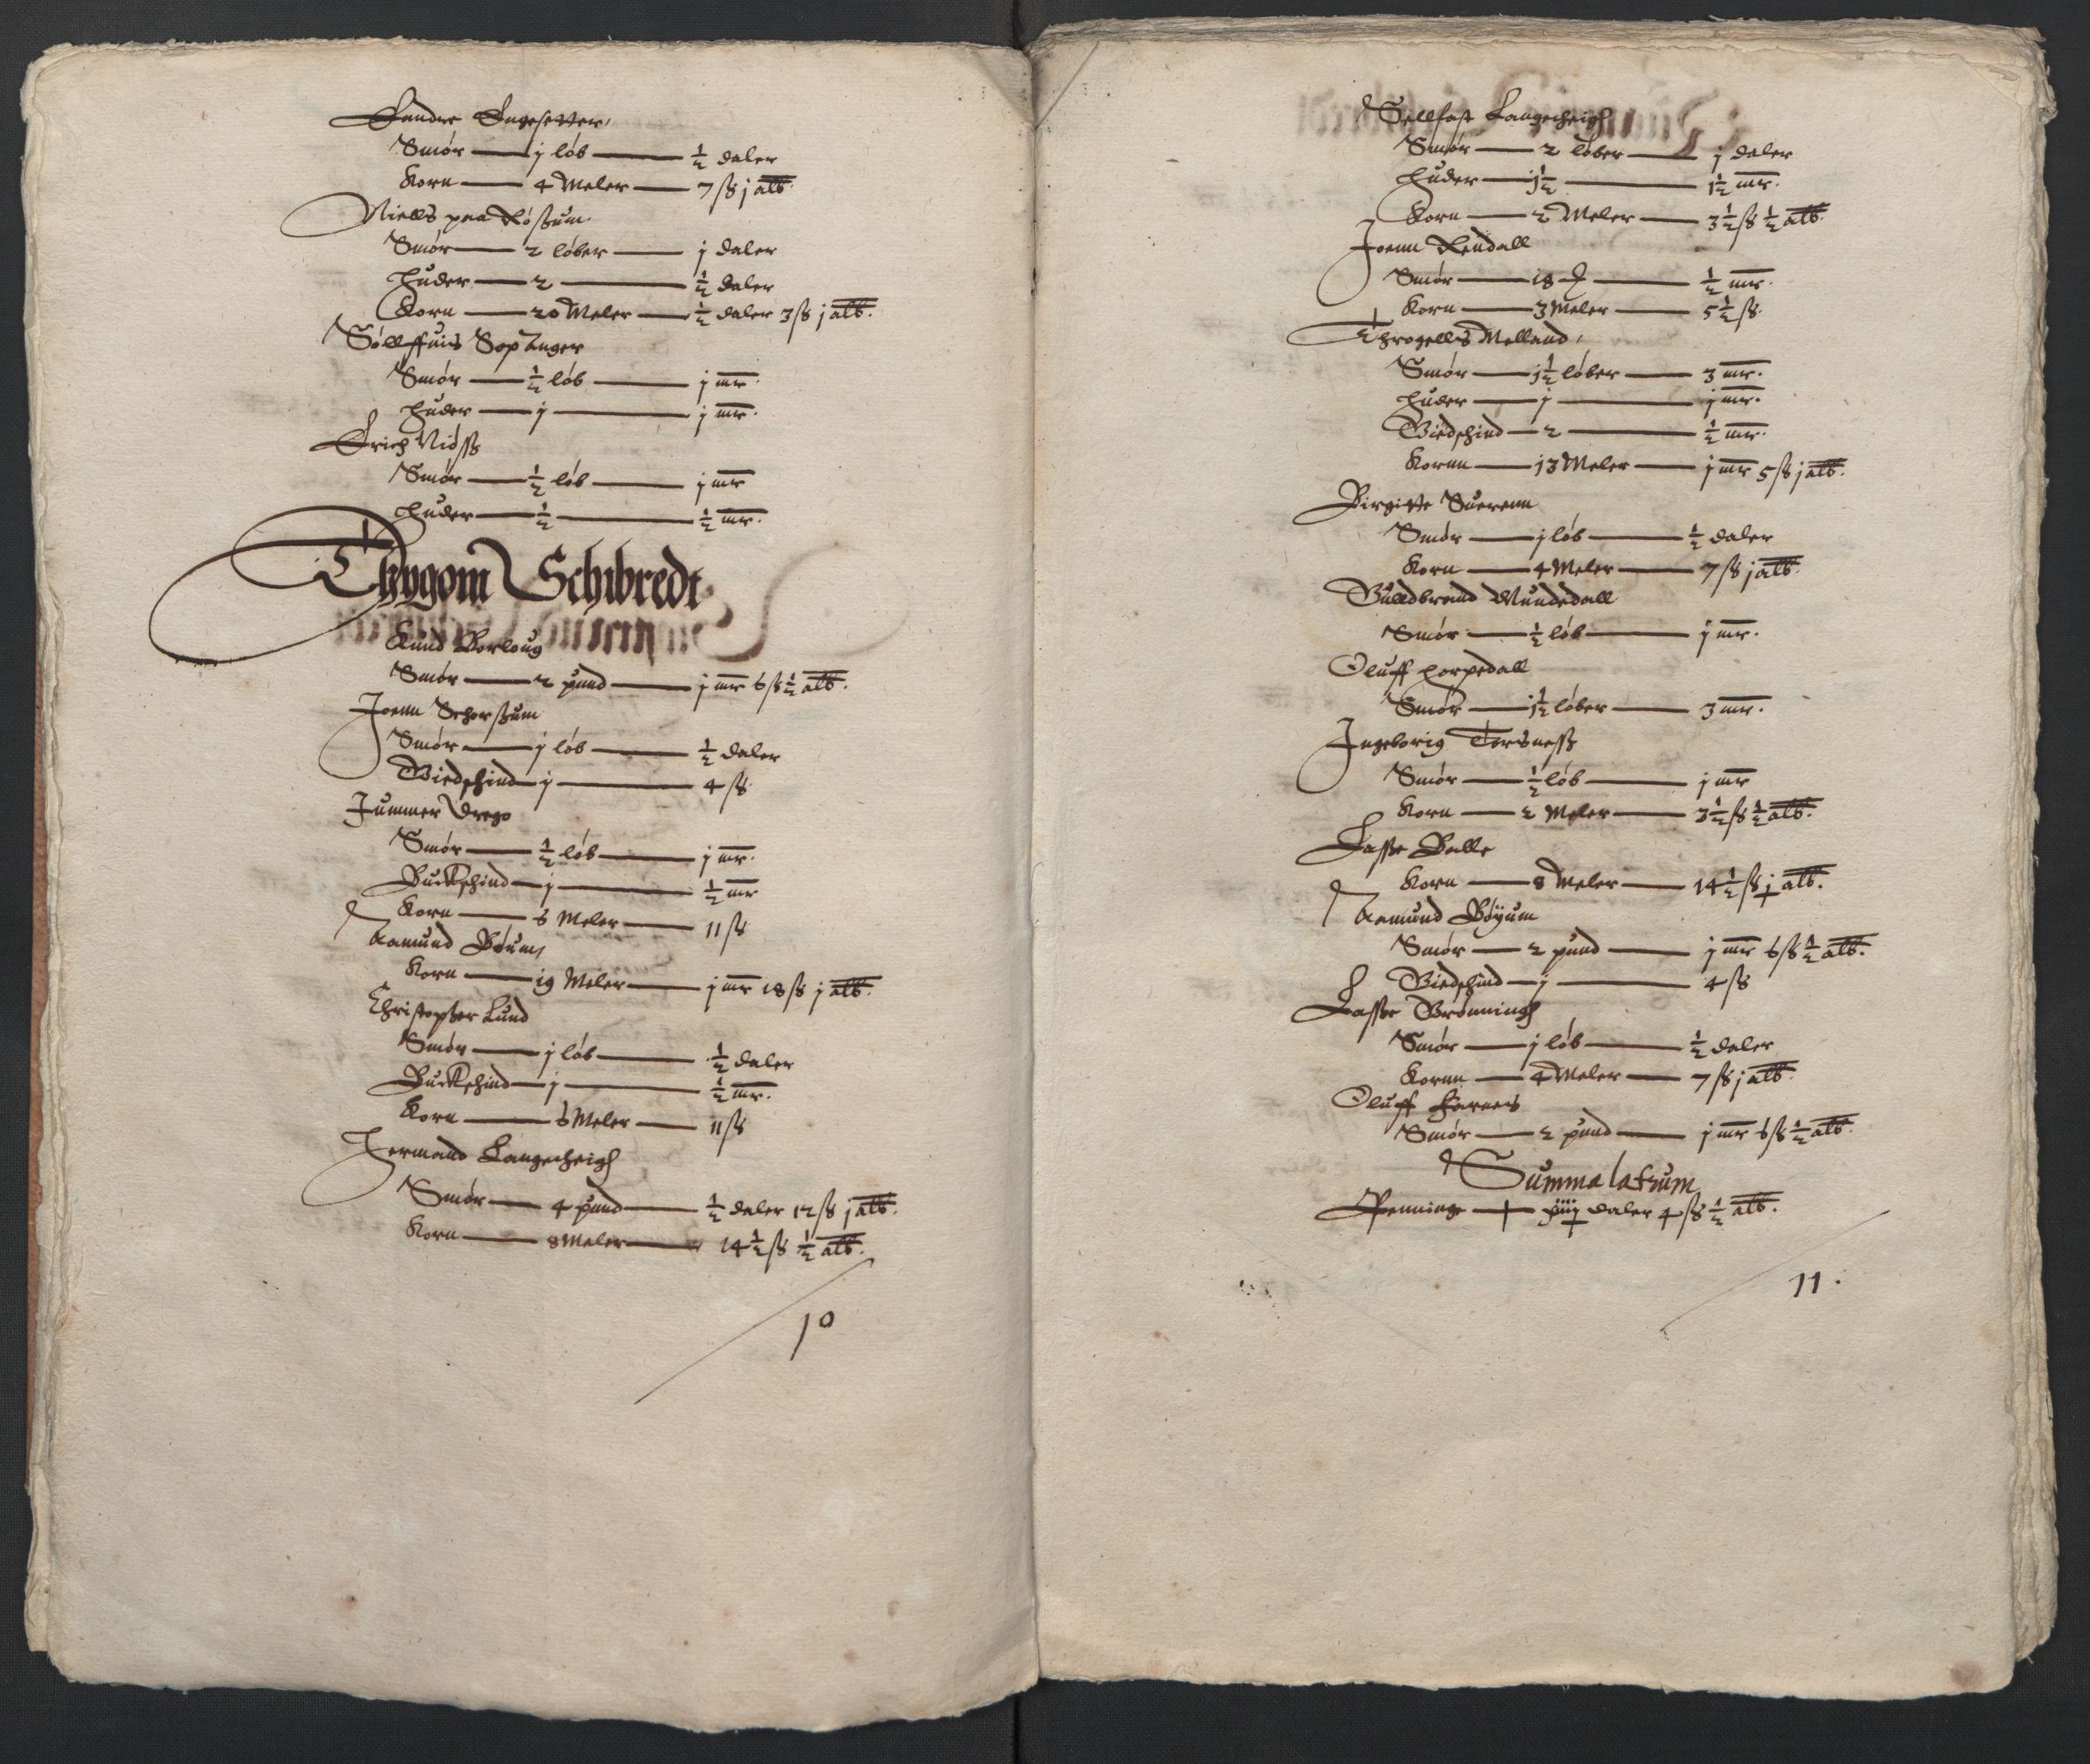 Smør — j løb — ½ daler
Korn — 4 Meler — 7 ß j alb.
Niells paa Røßum
Smør — 2 løber — j daler
Huder — 2 — ½ daler
Korn — 20 Meler — ½ daler 3 ß j alb.
Søllffuis
Smør — ½ løb — j mr.
Huder — j — j mr.
Erich Nióß
Smør — ½ løb — j mr
Huder — ½ — ½ mr.
Thygom Schibredt
Knud Borloug
Smør — 2 pund — j mr 6 ß ½ alb.
Joenn Schorßum
Smør — j løb — ½ daler
Biedschind j — 4 ß
Jummer Drego
Smør — ½ løb — j mr.
Buckschind — j — ½ mr
Korn — 6 Meler — 11 ß
Aamund Bøum
Korn — 19 Meler — j mr 18 ß j alb.
Christopher Lund
Smør — j løb — ½ daler
Buckschind — j — ½ mr.
Korn — 6 Meler — 11 ß
Hermand Langeheigh
Smør — 4 pund — ½ daler 12 ß j alb.
Korn — 8 Meler — 14 ½ ß ½ alb.
10
Sellfast Langeheigh
Smør — 2 løber — j daler
Huder — 1½ — 1½ mr.
Korn — 2 Meler — 3 ½ ß ½ alb.
Joenn Rendall
Smør — 18 — ½ mr.
Korn — 3 Meler — 5 ½ ß
Throgells Melland
Smør — 1½ løber — 3 mr.
Huder — j — j mr.
Biedschind — 2 — ½ mr.
Kornn — 13 Meler — j mr 5 ß j alb.
Birgitte Suerenn
Smør — j løb — ½ daler
Korn — 4 Meler — 7 ß j alb.
Gulldbrand Mundedall
Smør — ½ løb — j mr.
Oluff Horpedall
Smør — 1½ løber — 3 mr.
Ingeborig Torsneß
Smør — ½ løb — j mr
Korn — 2 Meler — 3 ½ ß ½ alb.
Lasse Balle
Korn — 8 Meler — 14 ½ ß j alb.
Aamund Bøyum
Smør — 2 pund — j mr 6 ß ½ alb.
Biedschind — j — 4 ß
Lasse Grønningh
Smør — j løb — ½ daler
Kornn — 4 Meler — 7 ß j alb.
Oluff
Smør — 2 pund — j mr 6 ß ½ alb.
Summa latrum
Penninge — daler 4 ß ½ alb.
11.